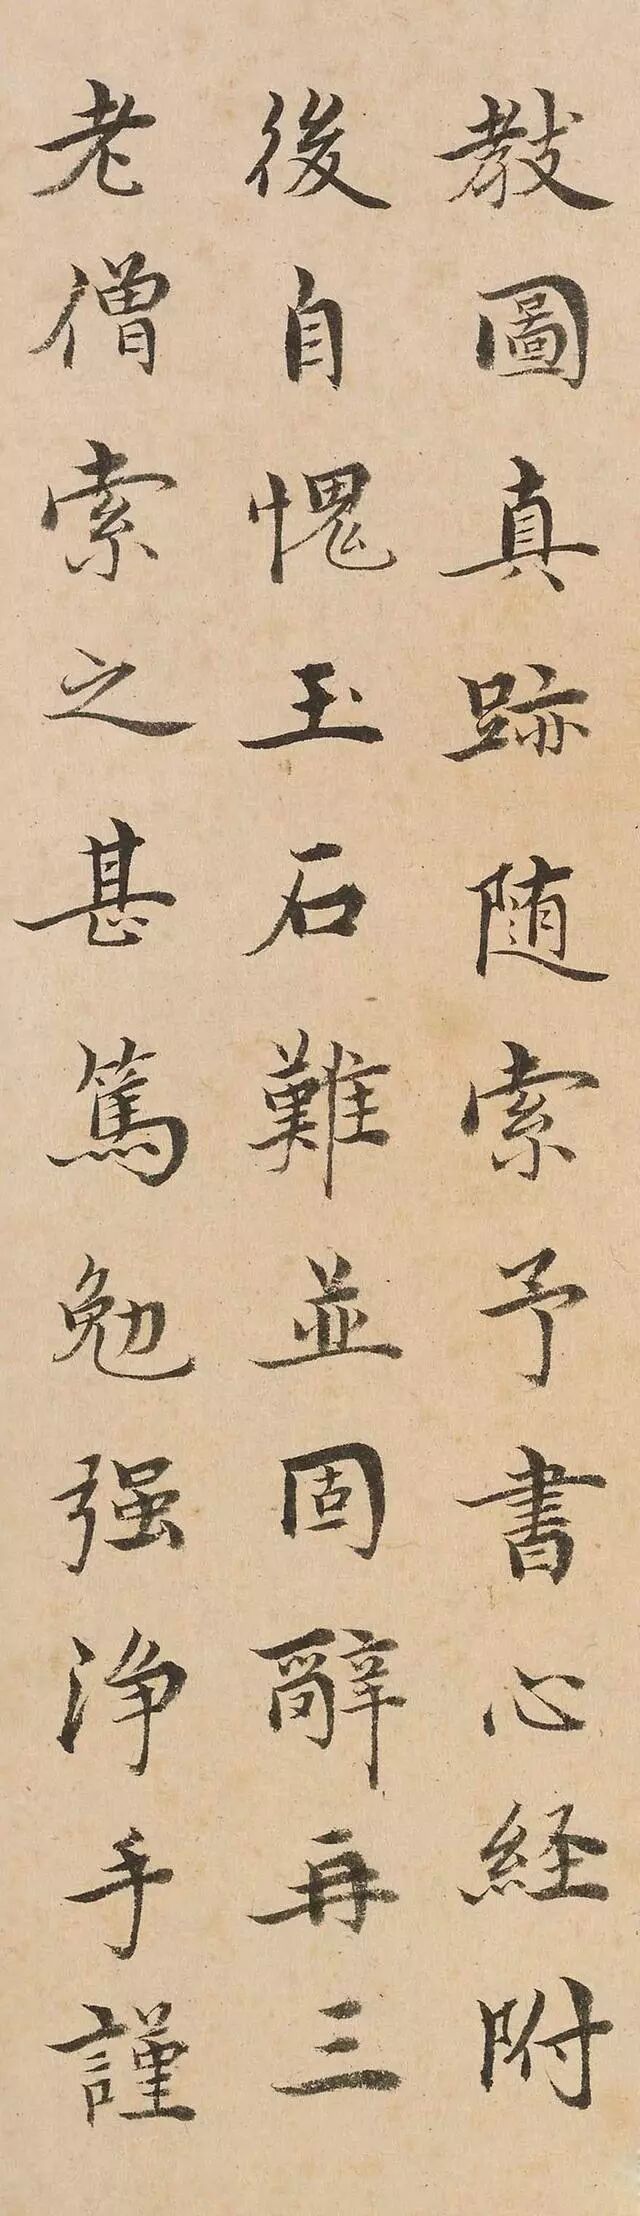 教圖真跡随索予書心経附
後自愧玉石難並固辭再三
老僧索之甚篤勉强浄手謹